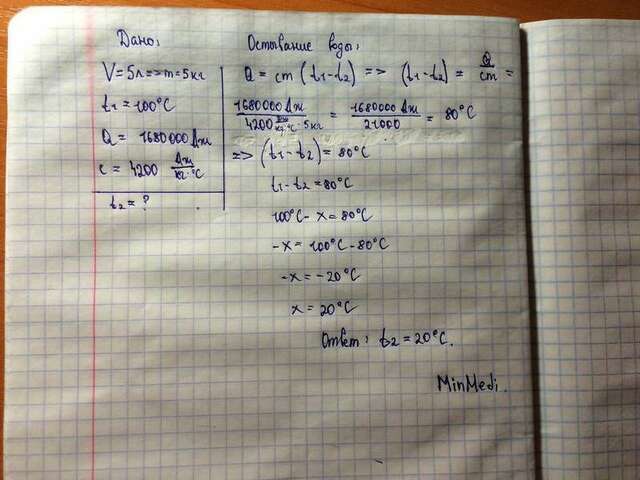 Дано:
V = 5л => m = 5кг
t1 = 100°C
Q = 1680000 Дж
c = 4200 Дж/кг·°C
t2 = ?
Остывание воды:
Q = cm (t1-t2) => (t1-t2) = Q/cm =
1680000 Дж / 4200 Дж/кг·°C · 5кг = 1680000 Дж / 21000 = 80°C
=> (t1-t2) = 80°C
t1-t2 = 80°C
100°C - x = 80°C
-x = 100°C - 80°C
-x = -20°C
x = 20°C
Ответ: t2 = 20°C.
MinMedi.